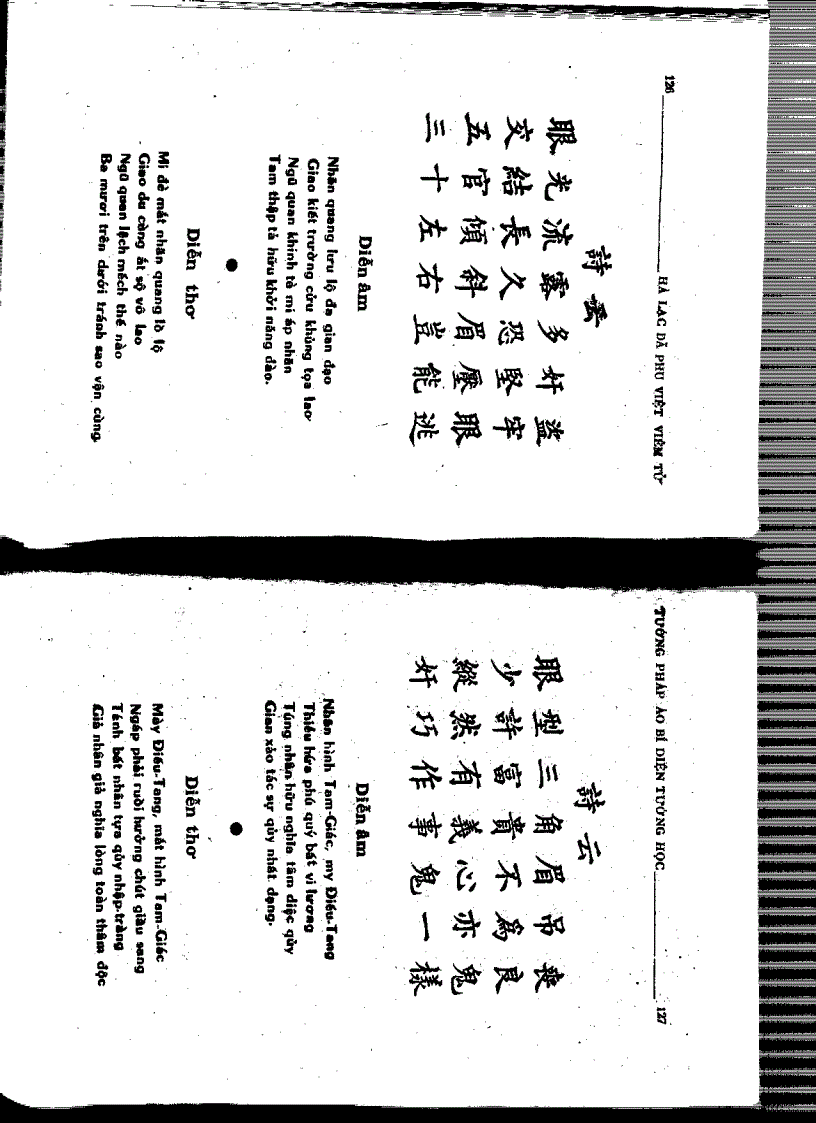 126 HÀ LẠC DÃ PHU VIỆT VIÊM TỬ
詩雲
眼光流露多奸盜
交結長久恐堅牢
五官傾斜眉壓眼
三十左右豈能逃
Diễn âm
Nhãn quang lưu lộ đa gian đạo
Giao kiết trường cửu khủng tọa lao
Ngũ quan khinh tà mi áp nhãn
Tam thập tả hữu khởi năng đào.
Diễn thơ
Mi đè mắt nhãn quang lồ lộ
Giao du càng ắt sộ vô lao
Ngũ quan lệch mếch thế nào
Ba mươi trên dưới tránh sao vận cùng.
TƯỚNG PHÁP ÁO BÍ DIỆN TƯỚNG HỌC 127
詩云
眼型三角眉吊喪
少許富貴不為良
縱然有義心亦鬼
奸巧作事鬼一樣
Diễn âm
Nhãn hình Tam-Giác, my Điếu-Tang
Thiểu hứa phú quý bất vi lương
Túng nhân hữu nghĩa tâm diệc qủy
Gian xảo tác sự qủy nhất dạng.
Diễn thơ
Mày Điếu-Tang, mắt hình Tam-Giác
Ngáp phải ruồi hưởng chút giàu sang
Tánh bất nhân tựa qủy nhập-tràng
Giả nhân giả nghĩa lòng toàn thâm độc